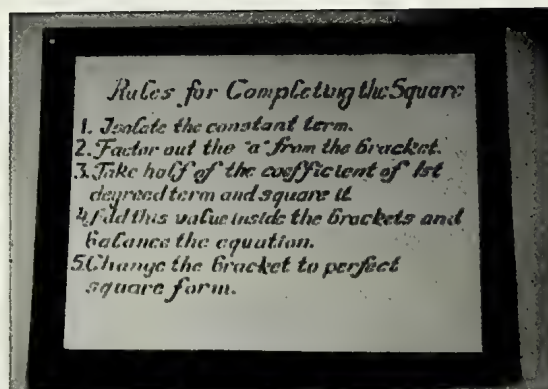 Rules for Completing the Square
1. Isolate the constant term.
2. Factor out the "a" from the bracket.
3. Take half of the coefficient of 1st
degreed term and square it
4. Add this value inside the brackets and
balance the equation.
5. Change the bracket to perfect
square form.